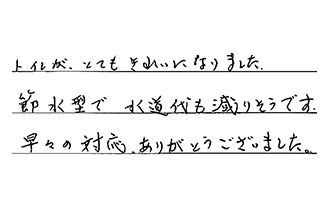 トイレが、とてもきれいになりました。
節水型で 水道代も減りそうです。
早々の対応、ありがとうございました。